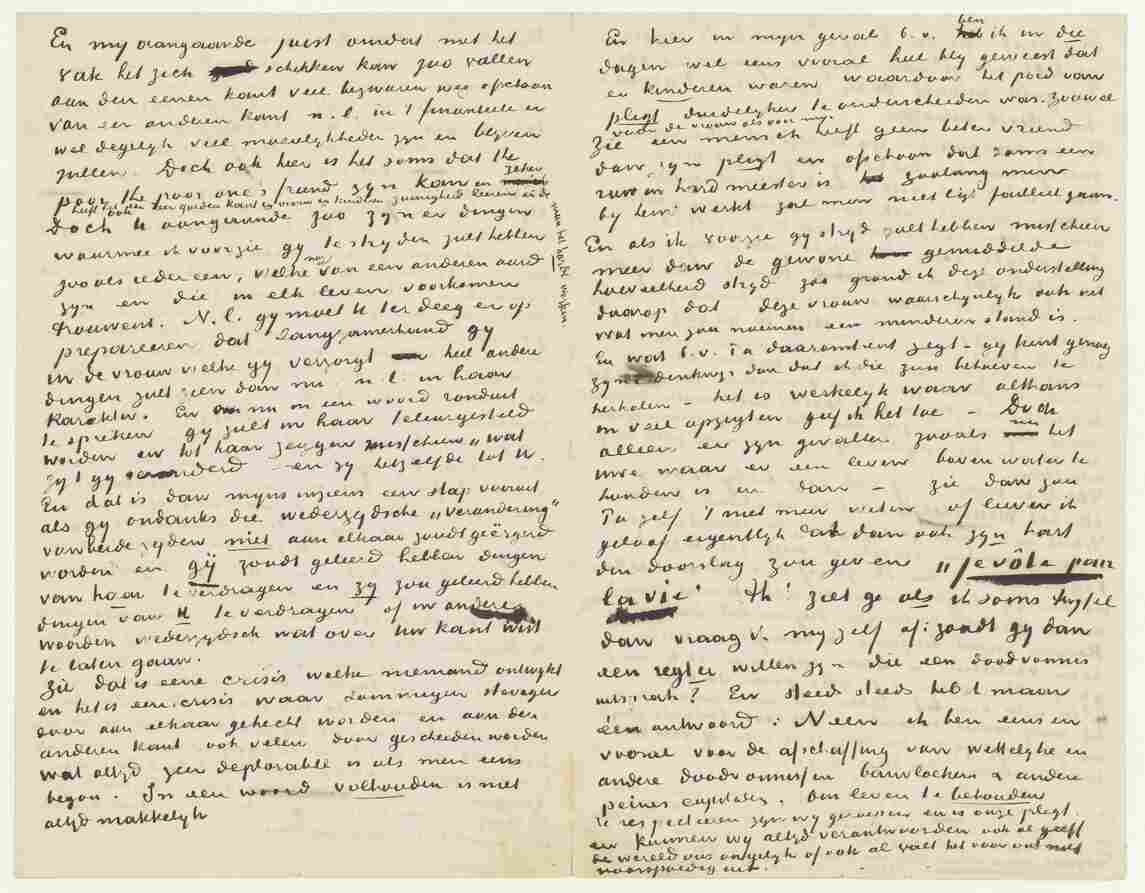 En my aangaande juist omdat met het
vak het zich schikken kan zoo vallen
aan den eenen kant veel bezwaren weg ofschoon
van een anderen kant n.l. in 't financieele er
wel degelyk veel moeielykheden zyn en blyven
zullen. Doch ook hier is het soms dat the
poor the poor one's friend zyn kan en zeker
heeft ook een zeer goeden kant en vrouw en kinderen zuinigheid leeren is de
man het beste wyzen
Doch U aangaande zoo zyn er dingen
waarmee ik voorzie gy te stryden zult hebben
zooals iedereen, welke nog van een anderen aard
zyn en die in elk leven voorkomen
trouwens. N.l. gy moet U ter deeg er op
prepareeren dat langzamerhand gy
in de vrouw welke gy verzorgt heel andere
dingen zult zien dan nu n.l. in haar
karakter. En nu om een woord ronduit
te spreken gy zult in haar teleurgesteld
worden en tot haar zeggen misschien „wat
zyt gy veranderd" en zy hetzelfde tot U.
En dat is dan myns inziens een stap vooruit
als gy ondanks die wederzydsche „verandering"
van beide zyden niet aan elkaar zoudt geërgerd
worden en gÿ zoudt geleerd hebben dingen
van haar te verdragen en zy zou geleerd hebben
dingen van U te verdragen of in andere
woorden wederzydsch wat over uw kant wist
te laten gaan.
Zie dat is eene crisis welke niemand ontwykt
en het is een crisis waar sommigen steviger
door aan elkaar gehecht worden en aan den
anderen kant ook velen door gescheiden worden
wat altyd zeer deplorabel is als men eens
begon. In een woord volhouden is niet
altyd makkelyk
En hier in myn geval b.v. ben ik in die
dagen wel eens vooral heel bly geweest dat
er kinderen waren waardoor het pad van
pligt duidelyker te onderscheiden was. zoowel
voor de vrouw als voor my.
Zie een mensch heeft geen beter vriend
dan zyn pligt en ofschoon dat soms een
ruw en hard meester is zoolang men
by hem werkt zal men niet ligt failliet gaan.
En als ik voorzie gy stryd zult hebben misschien
meer dan de gewone gemiddelde
hoeveelheid stryd zoo grond ik deze onderstelling
daarop dat deze vrouw waarschynlyk ook uit
wat men zou noemen een minderen stand is.
En wat b.v. Pa daaromtrent zegt – gy kent genoeg
zyne denkwys dan dat ik die zou behoeven te
herhalen – het is werkelyk waar althans
in veel opzigten geef ik het toe – Doch
alleen er zyn gevallen zooals nu het
uwe waar er een leven boven water te
houden is en dan – zie dan zou
Pa zelf 't niet meer weten of liever ik
geloof eigentlyk dat dan ook zyn hart
den doorslag zou geven „je vôte pour
la vie". Ah! ziet ge als ik soms twyfel
dan vraag ik my zelf af: zoudt gy dan
een regter willen zyn die een doodvonnis
uitsprak? En steeds steeds heb 't maar
één antwoord: Neen ik ben eens en
vooral voor de afschaffing van wettelyke en
andere doodvonnissen banvloeken & andere
peines capitales. Om leven te behouden
te respecteren zyn wy geroepen en is onze pligt
en kunnen wy altyd verantwoorden ook al geeft
de wereld ons ongelyk of ook al valt het voor ons niet
voorspoedig uit.